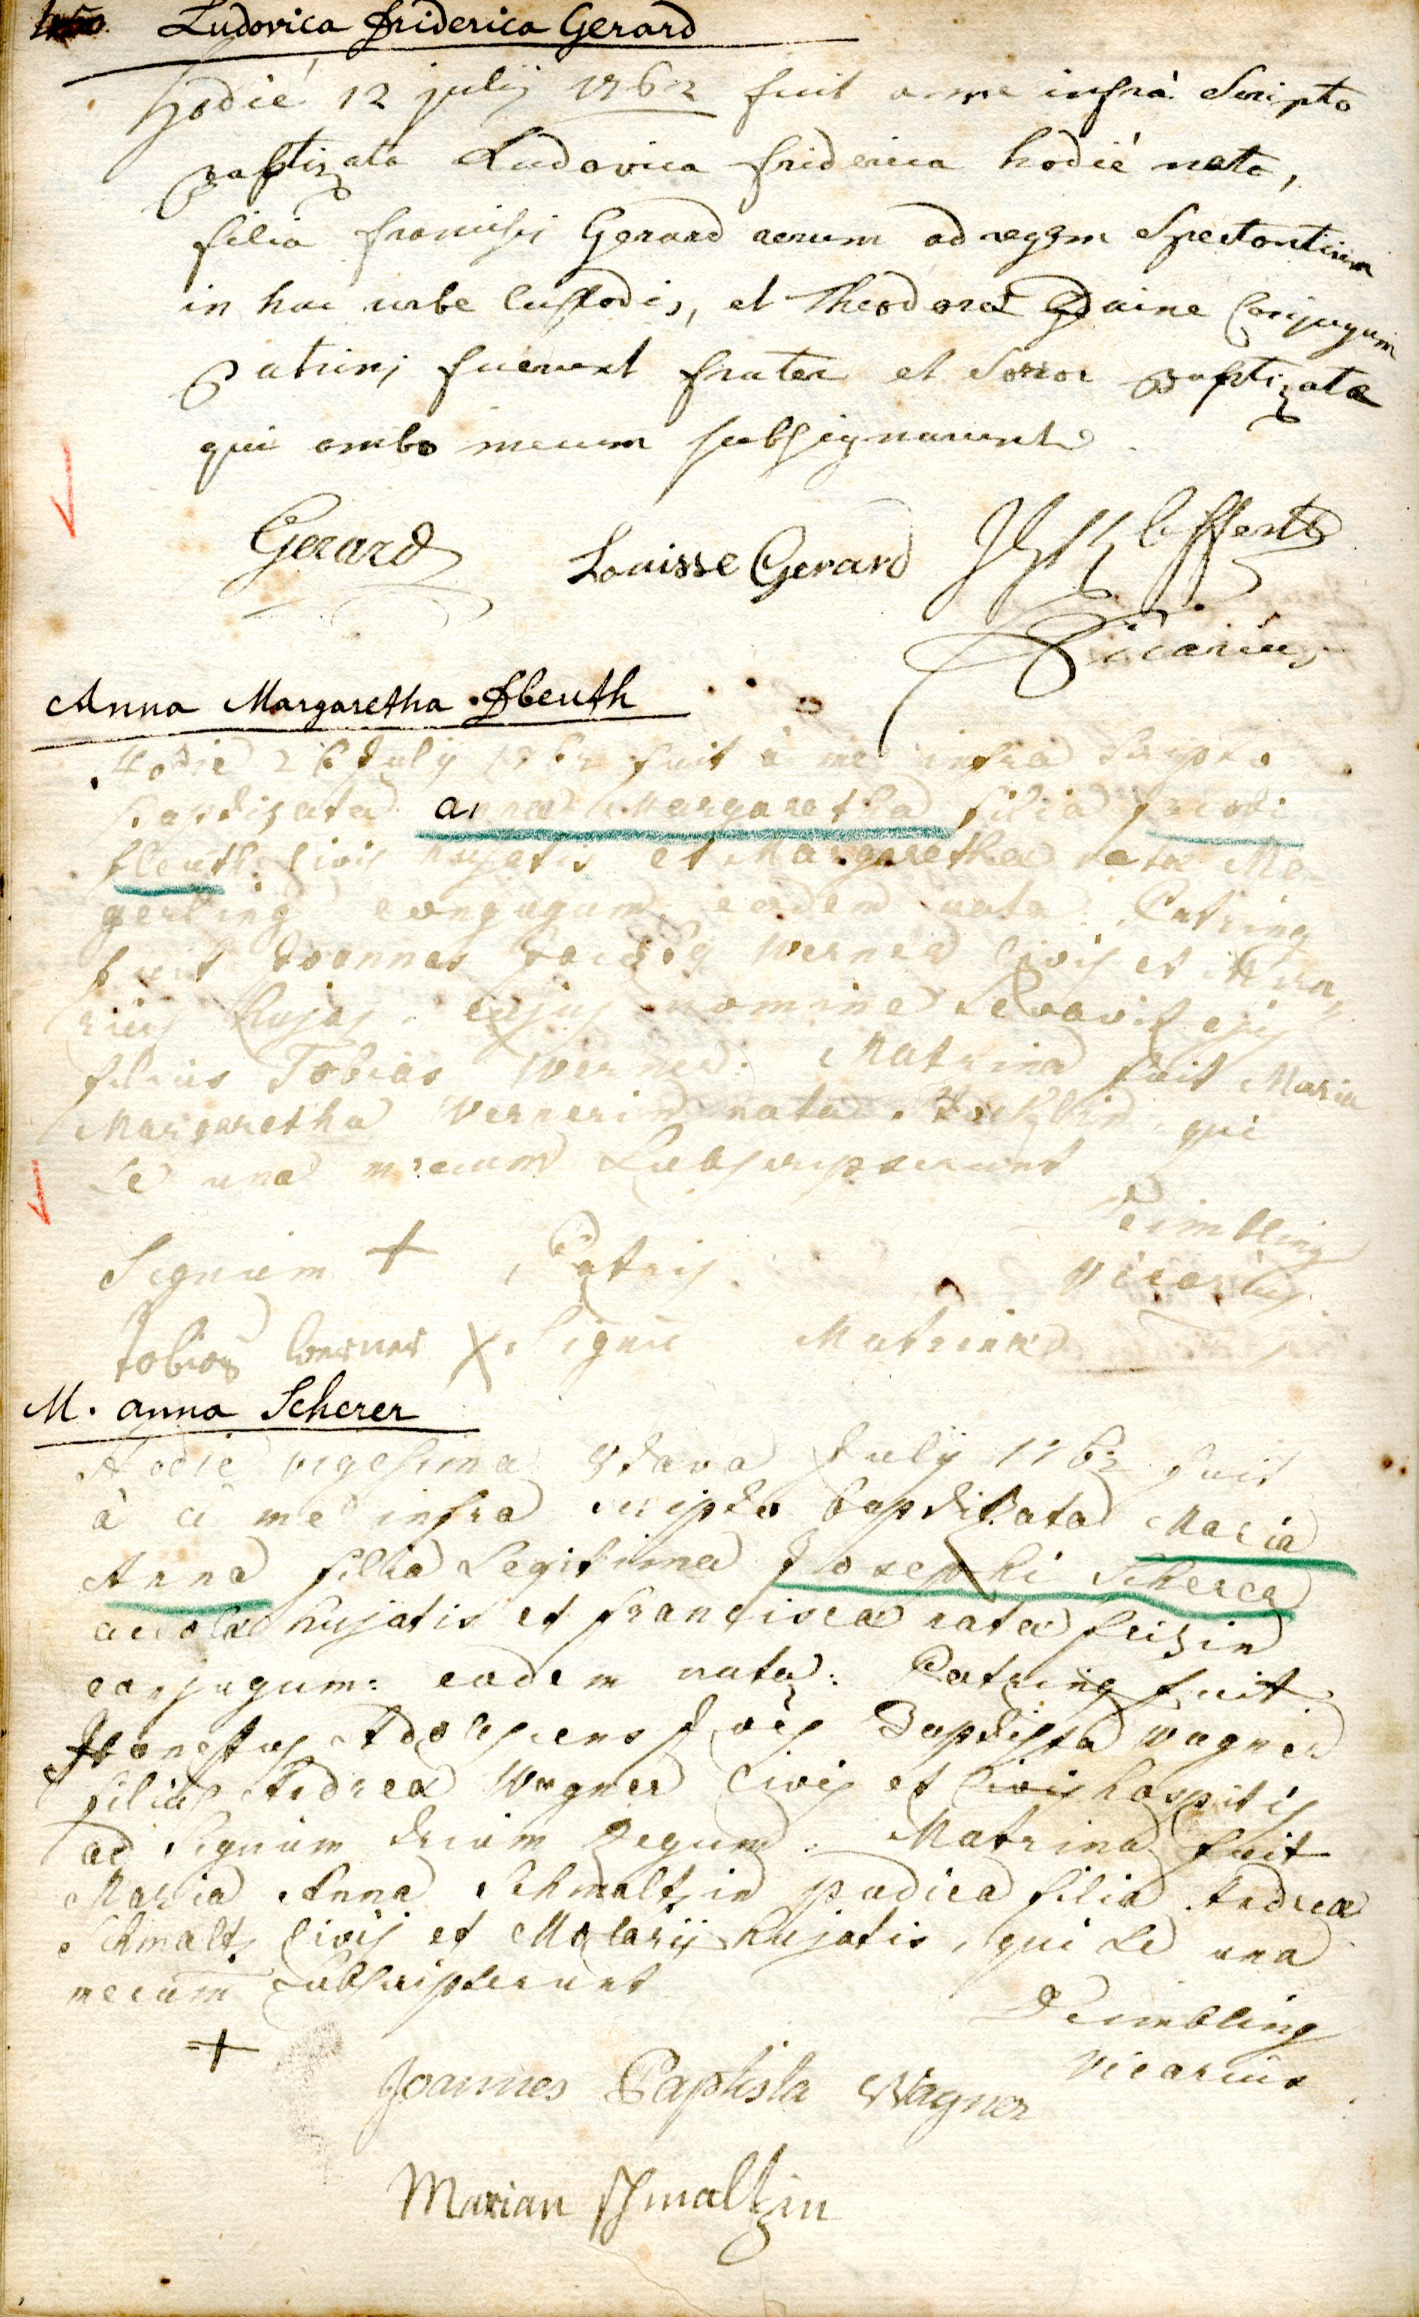 Ludovica friderica Gerard
hodié 12 julij 1762 fuit a me infrà Scripto
baptizata Ludovica friderica hodié nata,
filia francisci Gerard rerum ad regem Spectantium
in hac urbe Custodis, et Theodorae Daine Conjugum
Patrini fuerunt frater et Soror baptizatae
qui ambo mecum subsignarunt
Gerard Louisse Gerard
Vicarius
Anna Margaretha fleuth
Hodie 26 July 1762 fuit à me infra scripto
baptizata anna Margaretha filia jacobi
fleuth Civis hujatis et Margaretha nata Me
gerling conjugum, eadem nata: Patrinus
fuit Joannes Werner Civis et
rius hujas, cujus nomine Levavit ejus
filius Tobias Werner: Matrina fuit Maria
Margaretha Wernerin nata qui
se una mecum Subscripserunt
Deimbling
Signum + Patris Vicarius
Tobias Werner X Signū Matrinae
M. anna Scherer
Hodie vigesima octava July 1762 fuit
à a me infra scripto baptizata Maria
Anna filia Legitima Josephi Scherer
accolae hujatis et franciscae nata
conjugum: eadem nata: Patrinus fuit
Honestus Adolescens Joēs Baptista Wagner
filius Andreae Wagner Civis et Civis hospitis
ad Signum trium Regum: Matrina fuit
Maria Anna Schmaltzin pudica filia Andreae
Schmaltz Civis et Molarij hujatis, qui se una
mecum Subscripserunt
Deimbling
+ Joannes Baptista Wagner Vicarius
Marian Schmaltzin